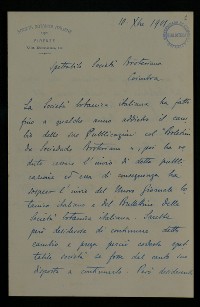 SOCIETÀ BOTANICA ITALIANA
FIRENZE
11 Xbre 1911
Spettabile Società Broteriana
Coimbra
La Società botanica italiana ha fatto
fino a qualche anno addietro il cam-
bio delle sue Pubblicazioni col Boletim
da Sociedade Broteriana, poi ha ve-
duto cessare l'invio di dette pubbli-
cazioni ed essa di conseguenza ha
sospeso l'invio del Nuovo giornale bo-
tanico italiano e del Bullettino della
Società botanica italiana. Sarebbe
però desiderosa di continuare detto
cambio e prega perciò codesta spet-
tabile società se fosse del canto suo
disposta a continuarlo. Però desiderando